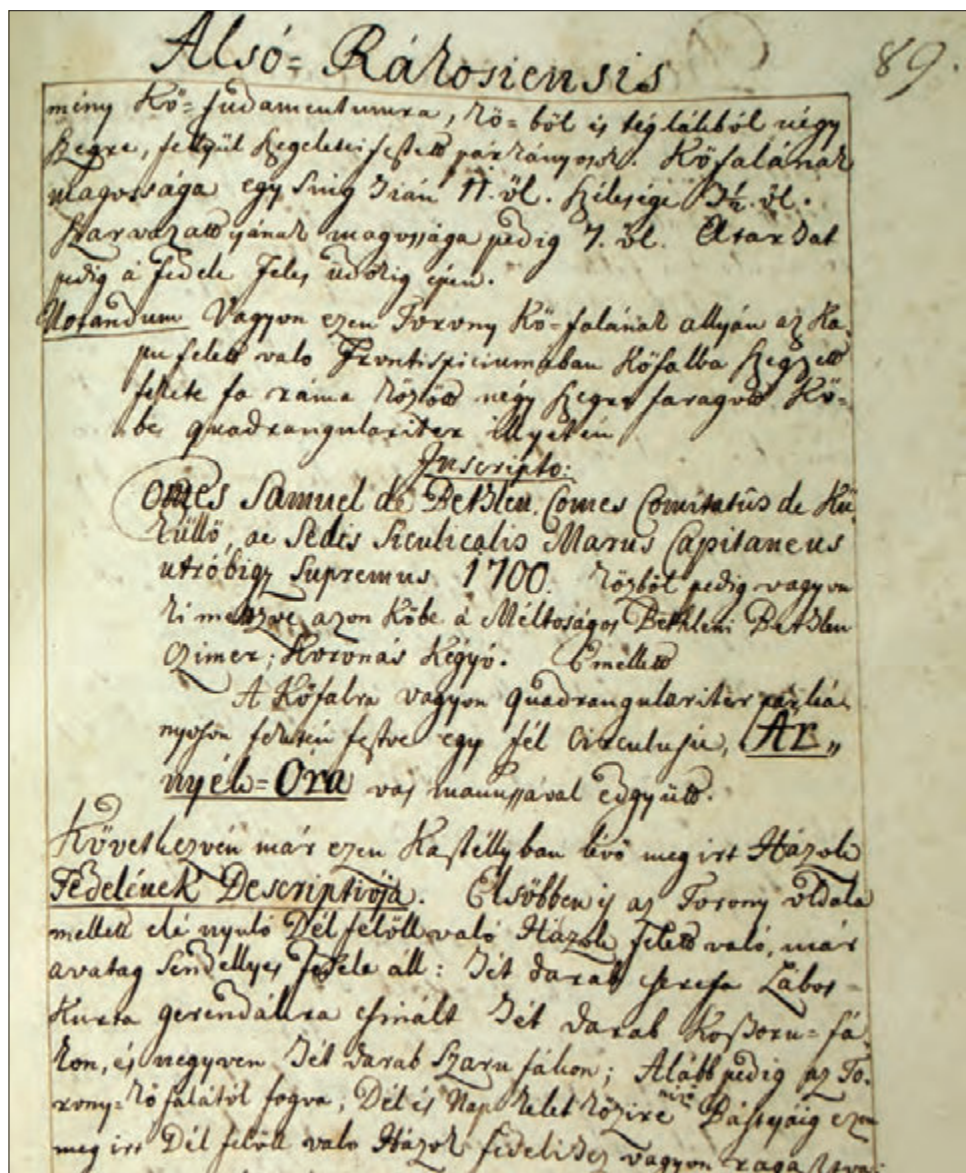 Alsó = Rákosiensis
89.
mény Kő = fudamentumra, kő = ből és téglákból négy
szegre, fellyül szegeletei festett párkányosok. Kőfalának
magossága egy sing iián 11. öl. szélessége 3½. öl.
Szarvazattyának magossága pedig 7. öl. El tarthat
pedig á fedele jeles üdökig épen.
Notandum Vagyon ezen Torony Kő = falának allyán az Ka,
pu felett való Frontispiciumában Kőfalba szegzett
fekete fa ráma között négy szegre faragott Kő =
be quadrangulariter illyetén
Inscripto:
Comes Samuel de Bethlen. Comes Comitatûs de Kü
küllő, ac Sedis Siculicalis Marus Capitaneus
utrobiqz Supremus 1700. közböl pedig vagyon
ki metszve azon Kőbe á Méltoságos Bethleni Bethlen
Czimer; Koronás Kégyó. Emellett
A Kőfalra vagyon quadrangulariter párká
nyoson feketén festve egy fél Circulusu, Ár „
nyék = Óra vas manussával edgyütt.
Következvén már ezen Kastéllyban lévő meg irt Házok
Fedelének Descriptiója. Elsöbben is az Torony oldala
mellett elé nyuló Dél felöll való Házok felett való, már
avatag Sendellyes fedele áll: Két darab cserefa Lábos =
Kurta gerendákra csinált Két darab Koszoru = fá
kon, és negyven Két darab Szaru fákon; Alább pedig az To,
rony = kő falától fogva, Dél és Nap kelet közire néző Bástyáig ezen
meg irt Dél felöll való Házok fedelihez vagyon ragasztva